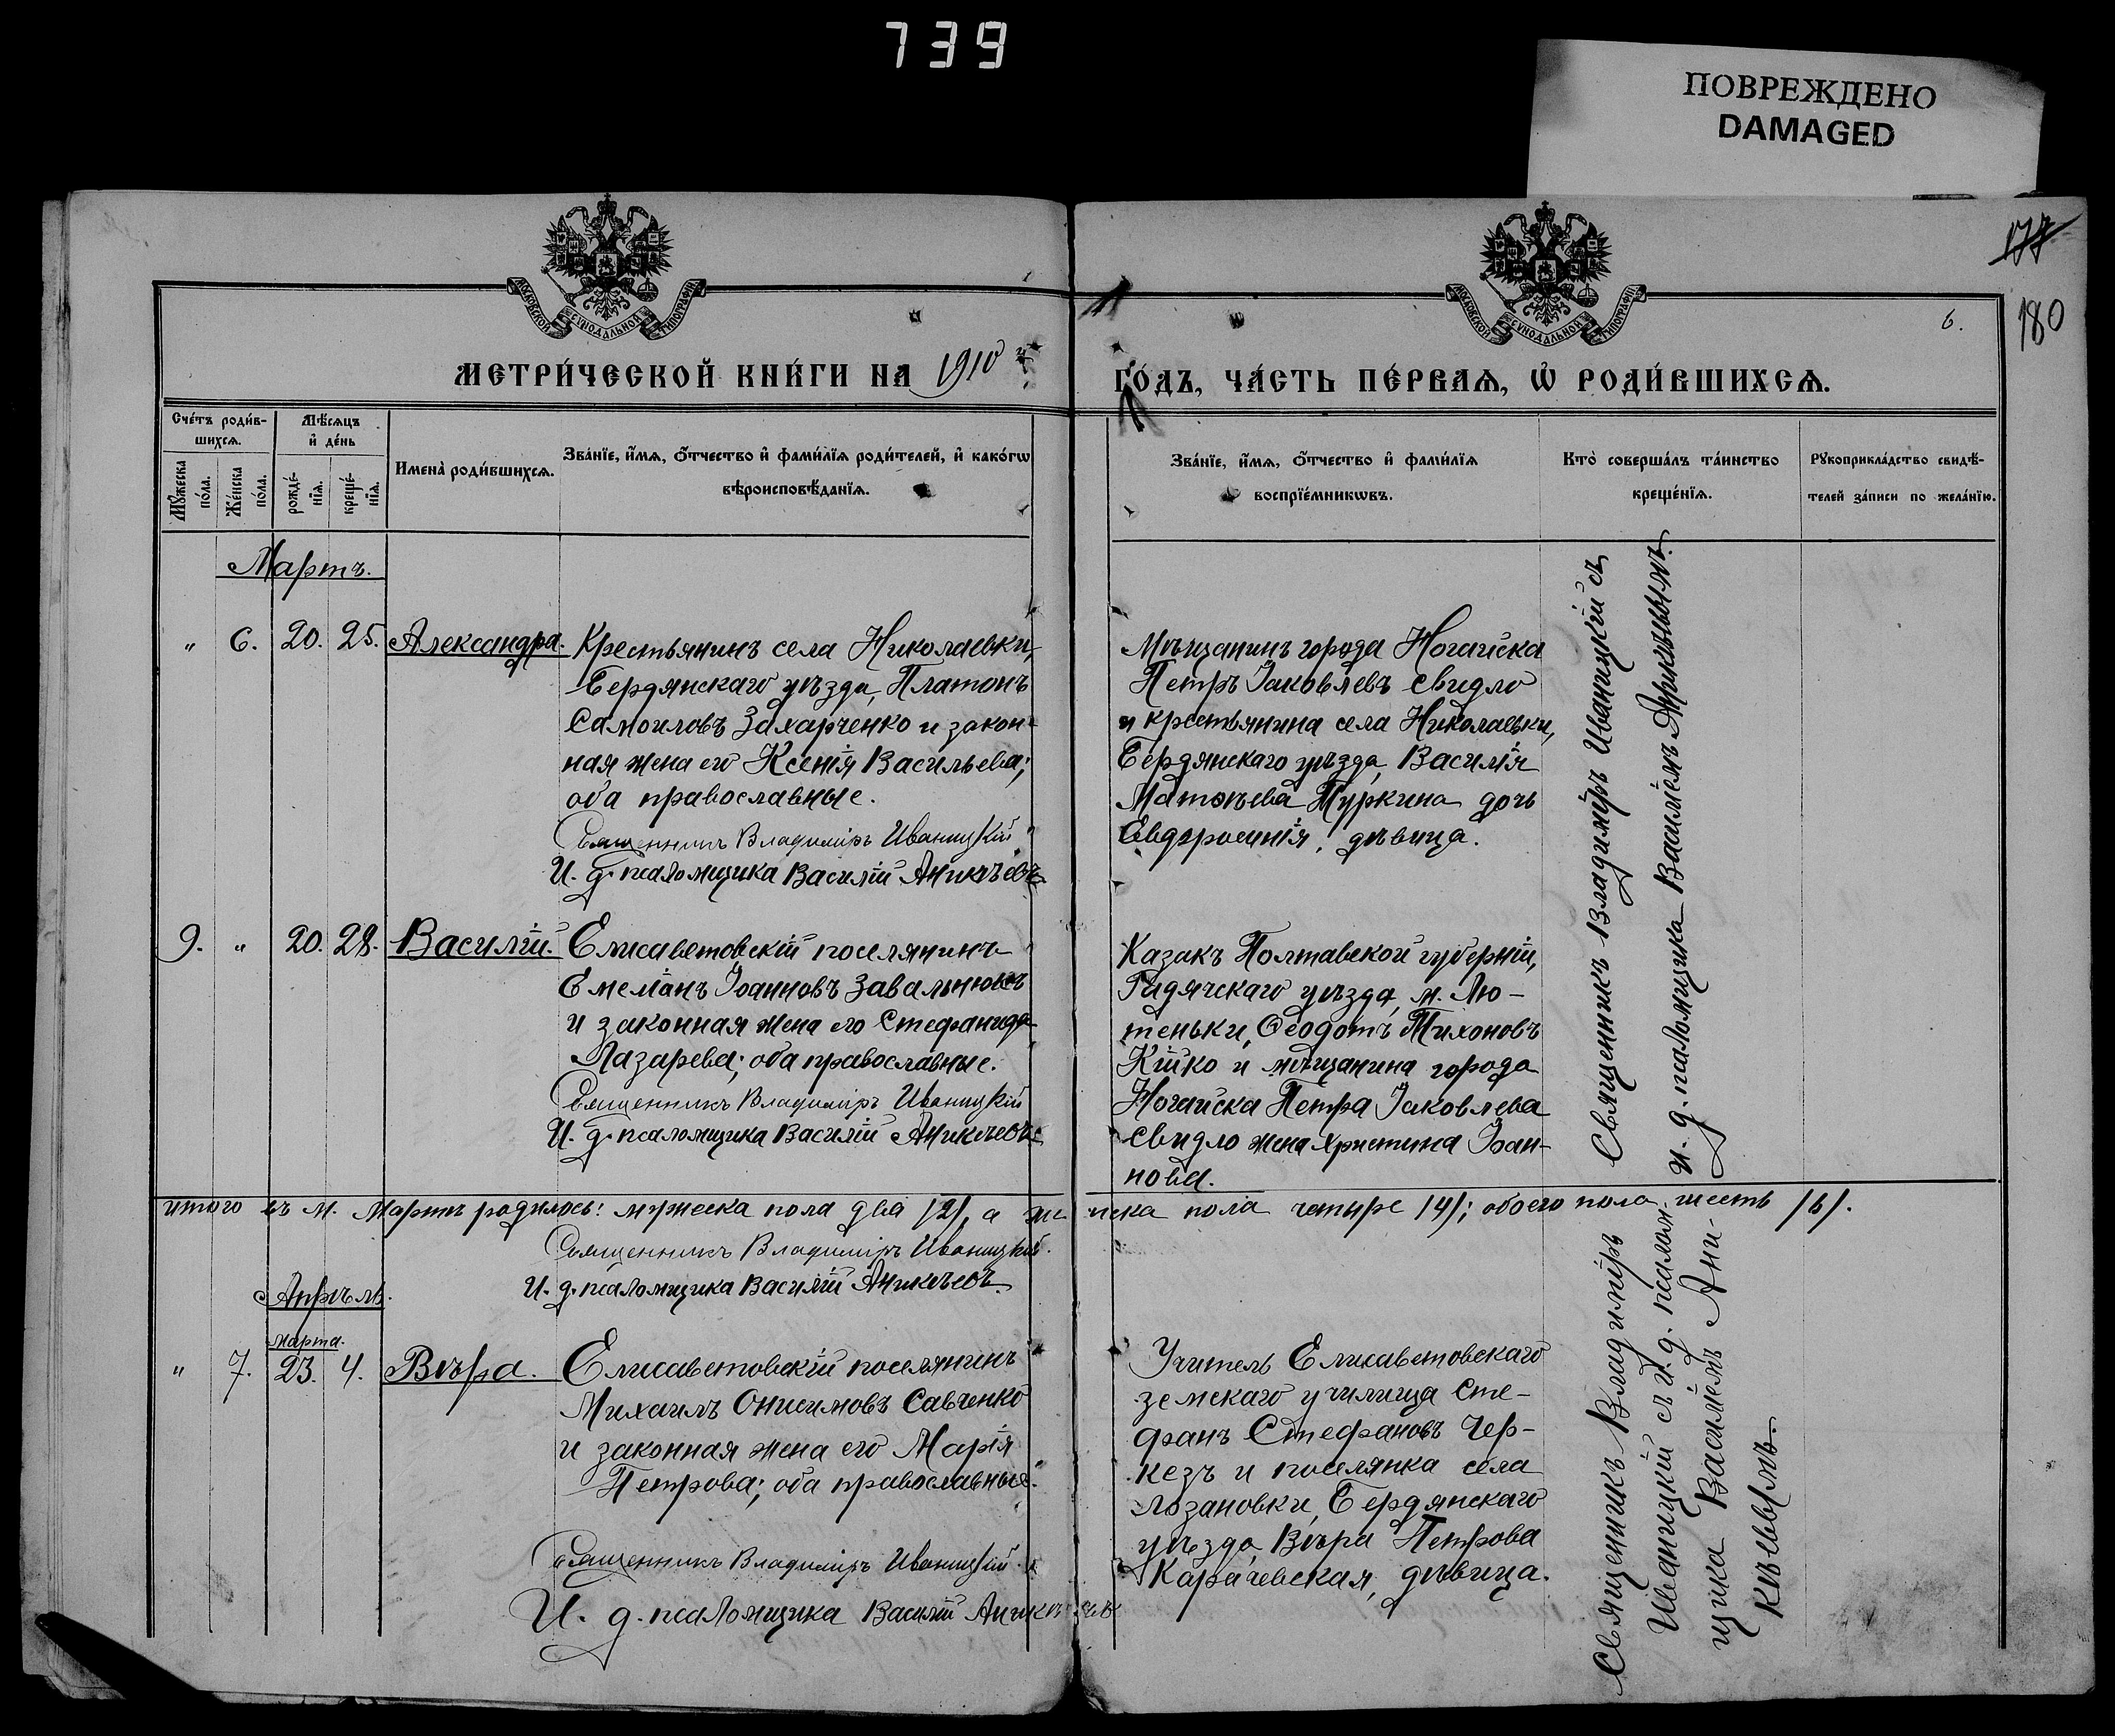 739
ПОВРЕЖДЕНО
DAMAGED
177
180
6.
МОСКОВСКОЙ СѴНОДАЛЬНОЙ ТИПОГРАФІИ
МОСКОВСКОЙ СѴНОДАЛЬНОЙ ТИПОГРАФІИ
МЕТРИ́ЧЕСКОЙ КНИ́ГИ НА 1910 й
ГО́ДЪ, ЧА́СТЬ ПЕ́РВАѦ, Ѽ РОДИ́ВШИХСѦ.
Сче́тъ роди́в-
шихсѧ.
Мꙋ́жеска
по́ла.
Же́нска
по́ла.
Мѣ́сѧцъ
и҆ де́нь
рожде́-
нїѧ.
креще́-
нїѧ.
И҆мена̀ роди́вшихсѧ.
Зва́нїе, и҆́мѧ, ѻ҆́тчество и҆ фами́лїѧ роди́телей, и҆ како́гѡ
вѣроисповѣ́данїѧ.
Зва́нїе, и҆́мѧ, ѻ҆́тчество и҆ фами́лїѧ
воспрїе́мникѡвъ.
Кто̀ соверша́лъ та́инство
креще́нїѧ.
Рꙋкоприкла́дство свидѣ́-
телей за́писи по жела́нїю.
Мартъ.
" 6. 20. 25. Александра.
Крестьянинъ села Николаевки,
Бердянскаго уѣзда, Платонъ
Самоиловъ Захарченко и закон-
ная жена его Ксенія Васильева;
оба православные.
Священникъ Владиміръ Иваницкій
И. д. псаломщика Василій Аникѣевъ
Мѣщанинъ города Ногайска
Петръ Іаковлевъ Свидло
и крестьянина села Николаевки,
Бердянскаго уѣзда, Василія
Матѳѣева Туркина дочь
Евфросинія, дѣвица.
Священникъ Владиміръ Иваницкій съ
и. д. псаломщика Василіемъ Аникѣевымъ.
9. " 20. 28. Василій.
Елисаветовскій поселянинъ
Емеліанъ Іоанновъ Завальнюкъ
и законная жена его Стефанида
Лазарева; оба православные.
Священникъ Владиміръ Иваницкій
И. д. псаломщика Василій Аникѣевъ
Казакъ Полтавской губерніи,
Гадячскаго уѣзда, м. Лю-
теньки, Ѳеодотъ Тихоновъ
Кійко и мѣщанина города
Ногайска Петра Іаковлева
Свидло жена Христина Іоан-
нова.
итого въ м. Мартѣ родилось: мужеска пола два /2/, а женска пола четыре /4/; обоего пола шесть /6/.
Священникъ Владиміръ Иваницкій.
И. д. псаломщика Василій Аникѣевъ.
Апрѣль.
марта.
" 7. 23. 4. Вѣра.
Елисаветовскій поселянинъ
Михаилъ Онисимовъ Савченко
и законная жена его Марія
Петрова; оба православные.
Священникъ Владиміръ Иваницкій.
И. д. псаломщика Василій Аникѣевъ
Учитель Елисаветовскаго
земскаго училища Сте-
фанъ Стефановъ Чер-
кезъ и поселянка села
Лозановки, Бердянскаго
уѣзда, Вѣра Петрова
Карачевская, дѣвица.
Священникъ Владиміръ
Иваницкій съ и. д. псалом-
щика Василіемъ Ани-
кѣевымъ.